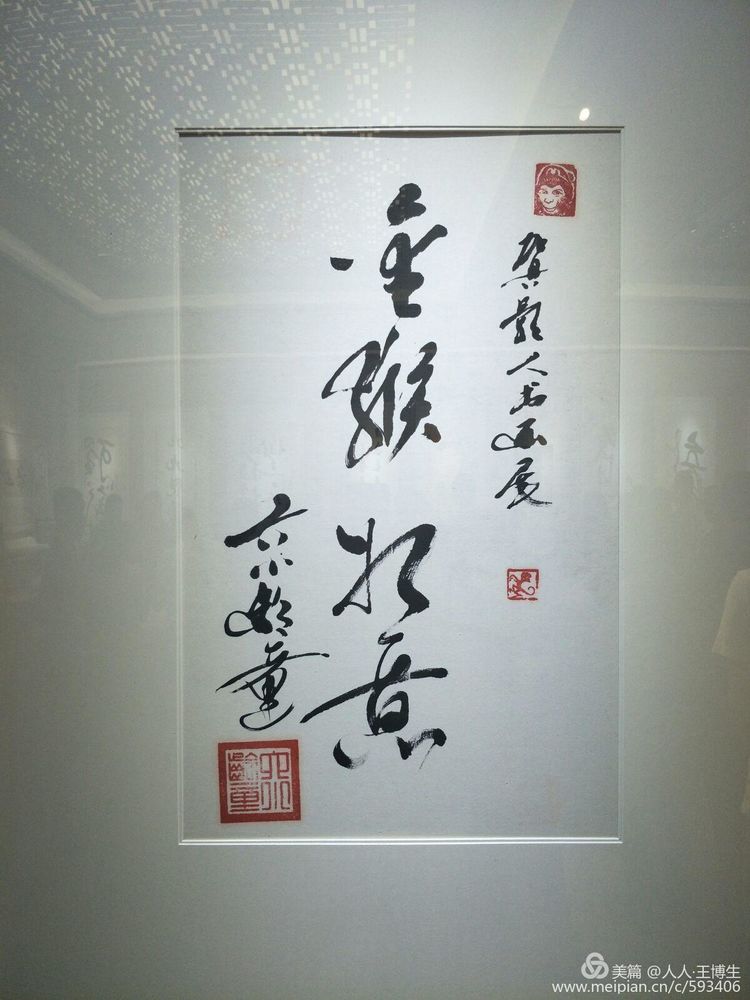 贺影人书画展
金猴意
六小龄童
六小齡童
美篇 @人人·王博生
www.meipian.cn/c/593406